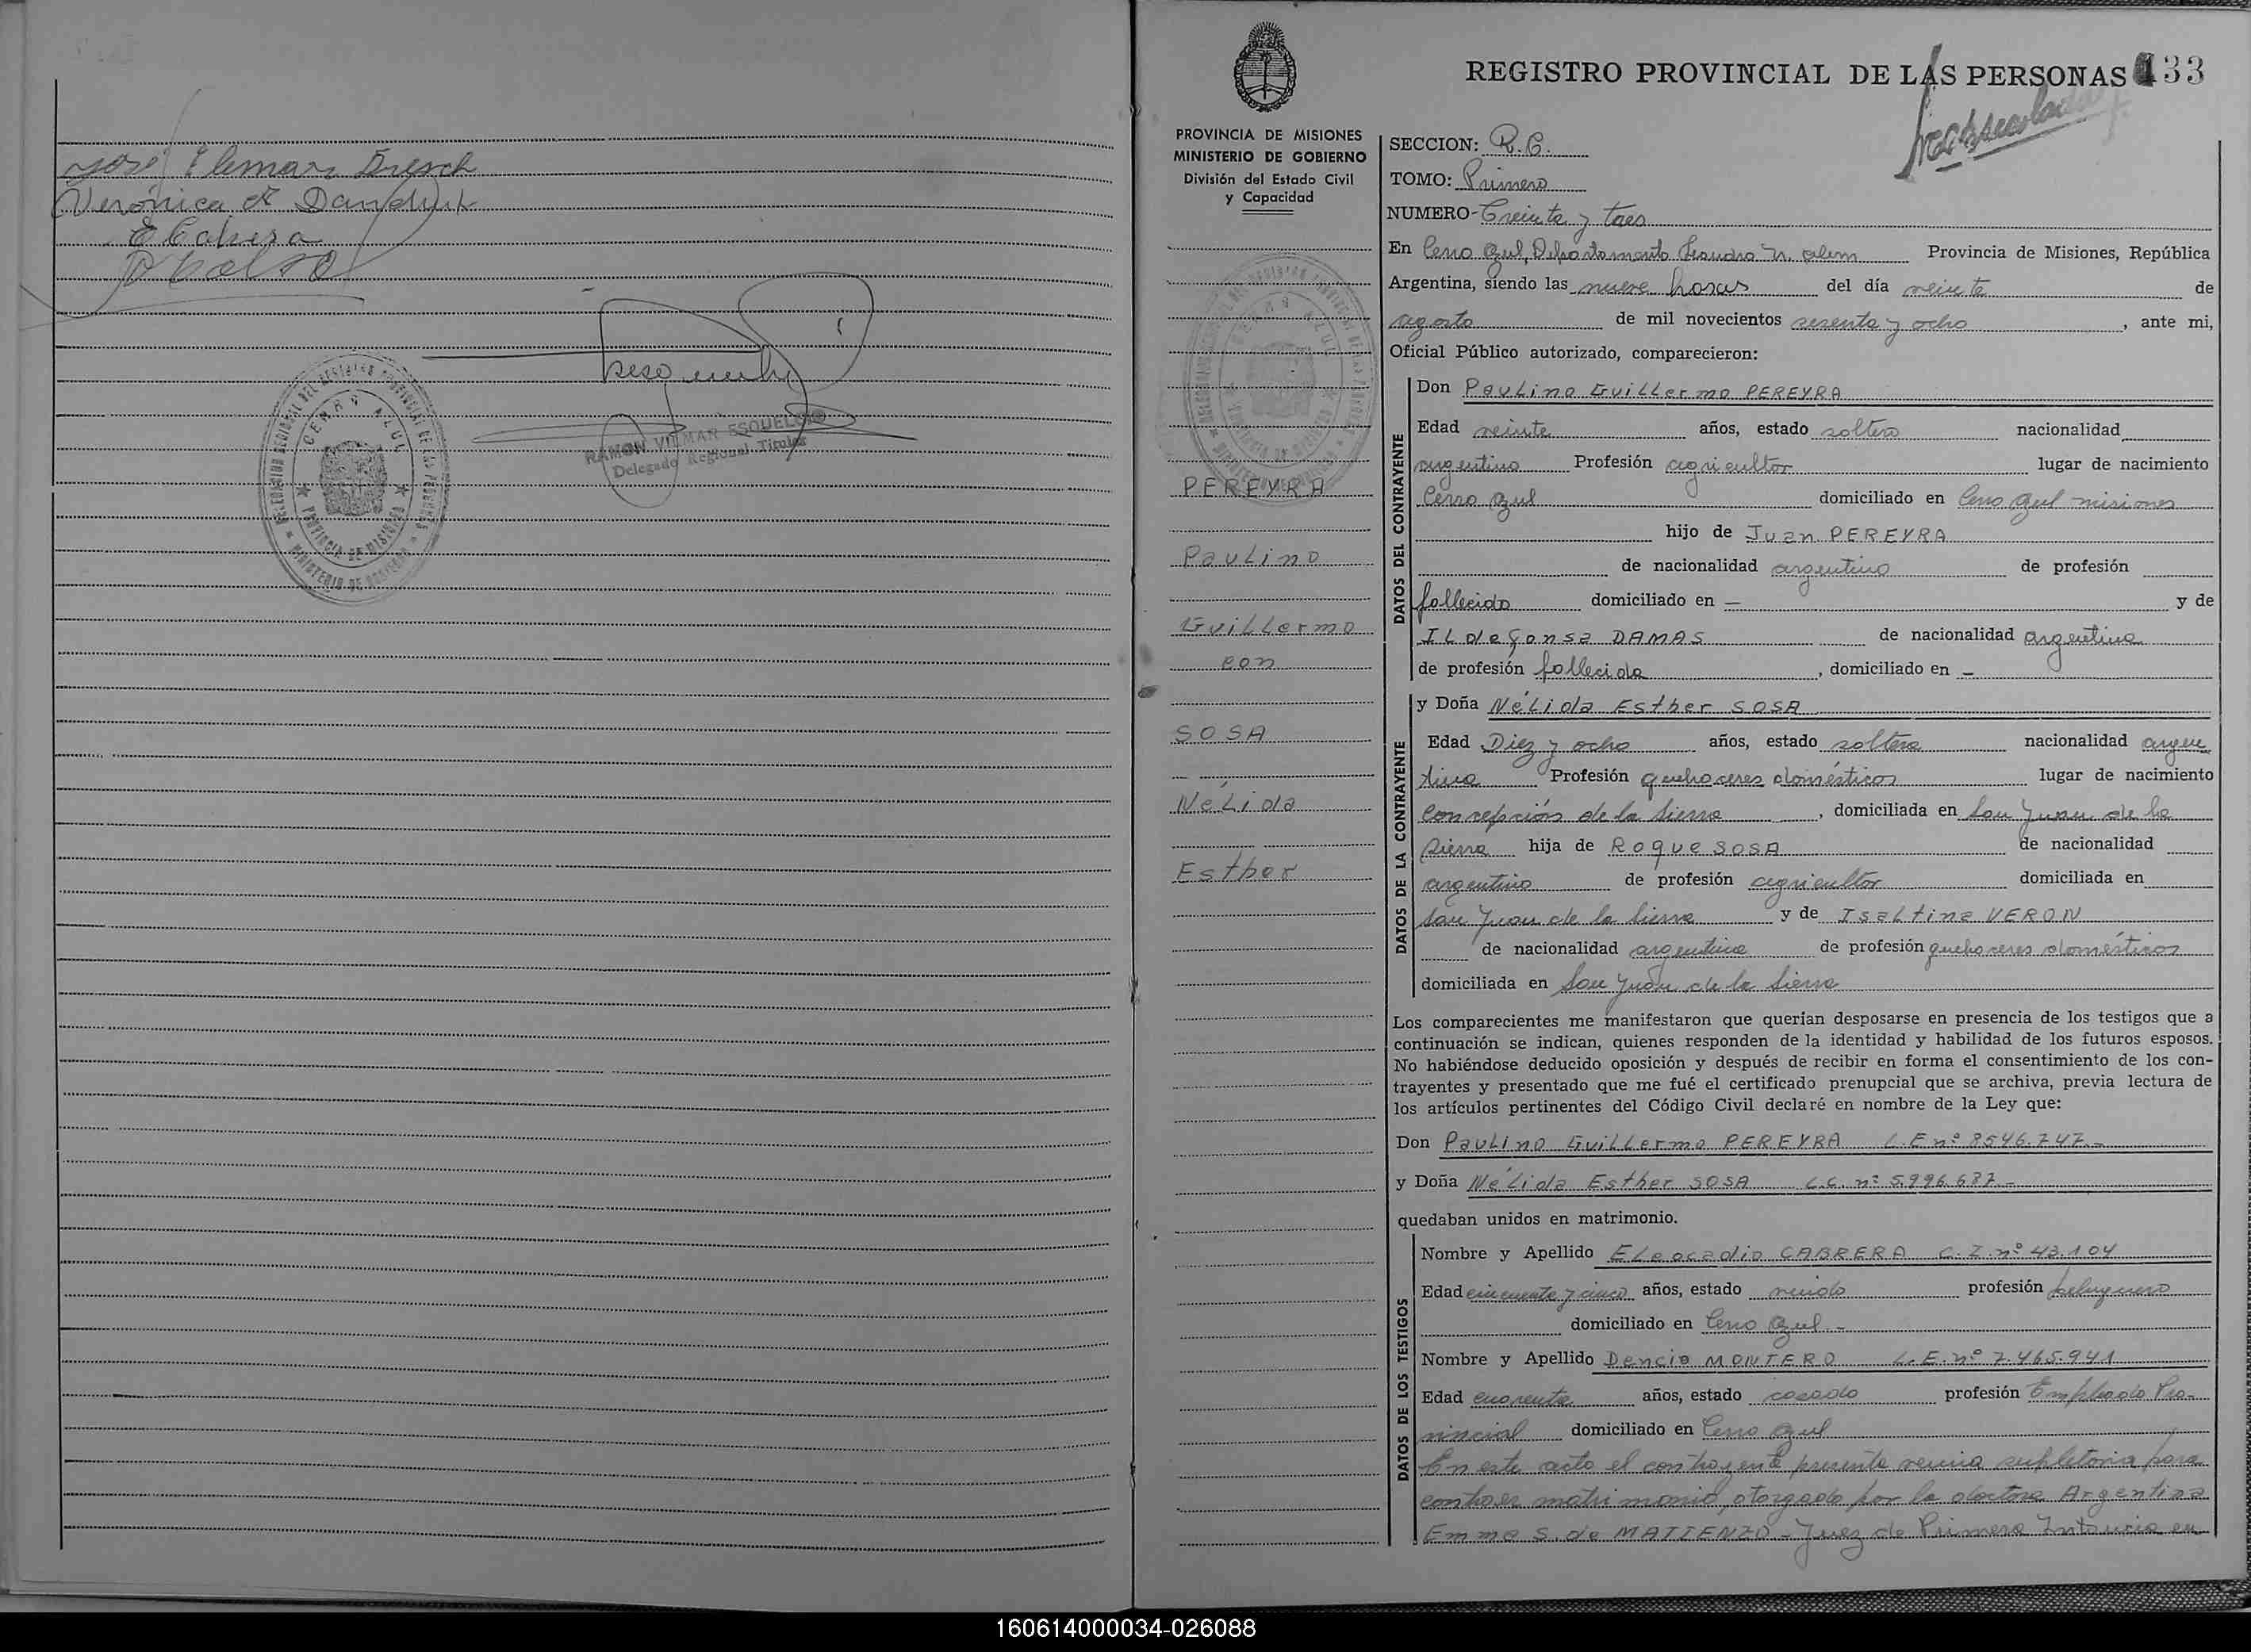 José Elemar Dresch
Verónica de
E Cabrera
RAMON VILMAR ESQUELCIO
Delegado Regional Titular
CERRO AZUL
PROVINCIA DE MISIONES
REGISTRO PROVINCIAL DE LAS PERSONAS 133
PROVINCIA DE MISIONES
MINISTERIO DE GOBIERNO
División del Estado Civil
y Capacidad
PEREYRA
Paulino
Guillermo
con
SOSA
Nélida
Esther
SECCION: R.C.
TOMO: Primero
NUMERO- Treinta y tres
En Cerro Azul, Departamento Leandro N. Alem Provincia de Misiones, República
Argentina, siendo las nueve horas del día veinte de
agosto de mil novecientos sesenta y ocho, ante mi,
Oficial Público autorizado, comparecieron:
DATOS DEL CONTRAYENTE
Don Paulino Guillermo PEREYRA
Edad veinte años, estado soltero nacionalidad
argentino Profesión agricultor lugar de nacimiento
Cerro Azul domiciliado en Cerro Azul misiones
hijo de Juan PEREYRA
de nacionalidad argentino de profesión
fallecido domiciliado en — y de
ILdefonsa DAMAS de nacionalidad argentina
de profesión fallecida, domiciliado en —
DATOS DE LA CONTRAYENTE
y Doña Nélida Esther SOSA
Edad Diez y ocho años, estado soltera nacionalidad argen
tina Profesión quehaceres domésticos lugar de nacimiento
Concepción de la Sierra, domiciliada en San Juan de la
Sierra hija de Roque SOSA de nacionalidad
argentino de profesión agricultor domiciliada en
San Juan de la Sierra y de Isaltina VERON
de nacionalidad argentina de profesión quehaceres domésticos
domiciliada en San Juan de la Sierra
Los comparecientes me manifestaron que querían desposarse en presencia de los testigos que a
continuación se indican, quienes responden de la identidad y habilidad de los futuros esposos.
No habiéndose deducido oposición y después de recibir en forma el consentimiento de los con-
trayentes y presentado que me fué el certificado prenupcial que se archiva, previa lectura de
los artículos pertinentes del Código Civil declaré en nombre de la Ley que:
Don Paulino Guillermo PEREYRA L.E nº 8546.747.-
y Doña Nélida Esther SOSA L.C. nº 5.996.687-
quedaban unidos en matrimonio.
DATOS DE LOS TESTIGOS
Nombre y Apellido Eleocadio CABRERA C.I. nº 43.104
Edad cincuenta y cinco años, estado viudo profesión peluquero
domiciliado en Cerro Azul.-
Nombre y Apellido Dencio MONTERO L.E. nº 7.465.941
Edad cuarenta años, estado casado profesión Empleado Pro-
vincial domiciliado en Cerro Azul
En este acto el contrayente presenta venia supletoria para
contraer matrimonio, otorgado por la doctora Argentina
Emma S. de MATIENZO - Juez de Primera Instancia en
160614000034-026088